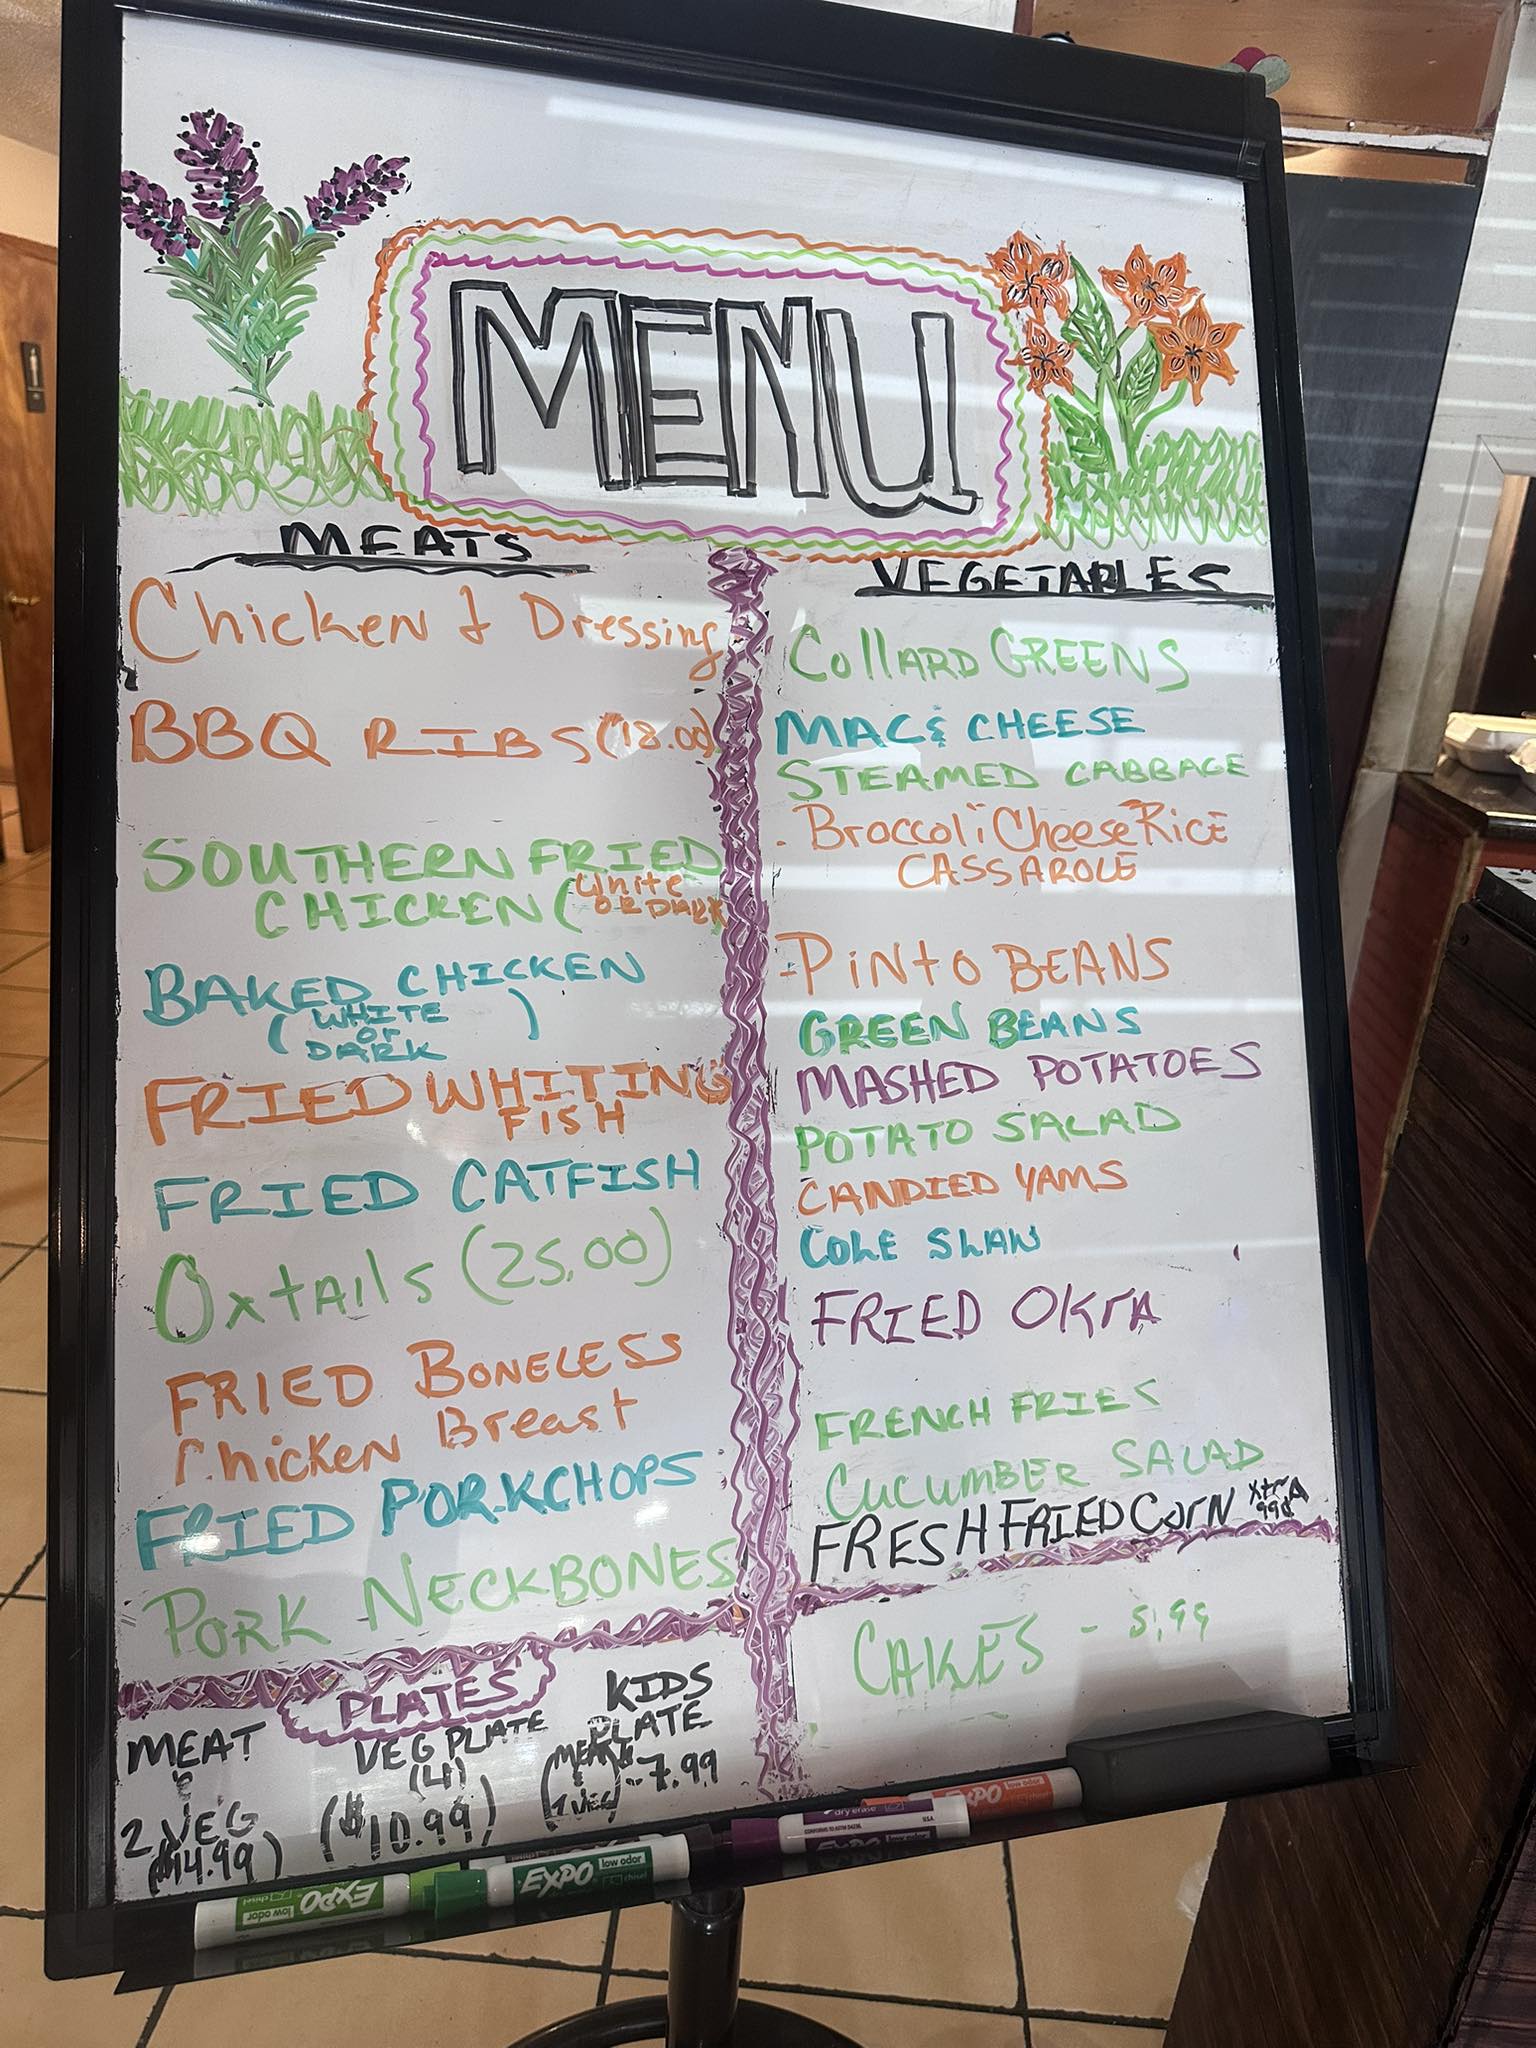 MENU
MEATS
Chicken & Dressing
BBQ RIBS (18.00)
SOUTHERN FRIED
CHICKEN (White
OR DARK
BAKED CHICKEN
( WHITE )
or
DARK
FRIED WHITING
FISH
FRIED CATFISH
Oxtails (25.00)
FRIED BONELESS
Chicken Breast
FRIED PORKCHOPS
PORK NECKBONES
VEGETABLES
Collard GREENS
MAC & CHEESE
STEAMED CABBAGE
Broccoli Cheese Rice
CASSAROLE
PINTO BEANS
GREEN BEANS
MASHED POTATOES
POTATO SALAD
CANDIED YAMS
COLE SLAW
FRIED OKrA
FRENCH FRIES
CUCUMBER SALAD
FRESH FRIED Corn XtrA
99¢
CAKES - 5.99
PLATES
MEAT
&
2 VEG
($14.99)
VEG PLATE
(4)
($10.99)
KIDS
PLATE
(MEAT
&
1 VEG) - 7.99
EXPO low odor
chisel
EXPO low odor
chisel
dry erase
CONFORMS TO ASTM D4236
USA
EXPO low odor
EXPO low odor